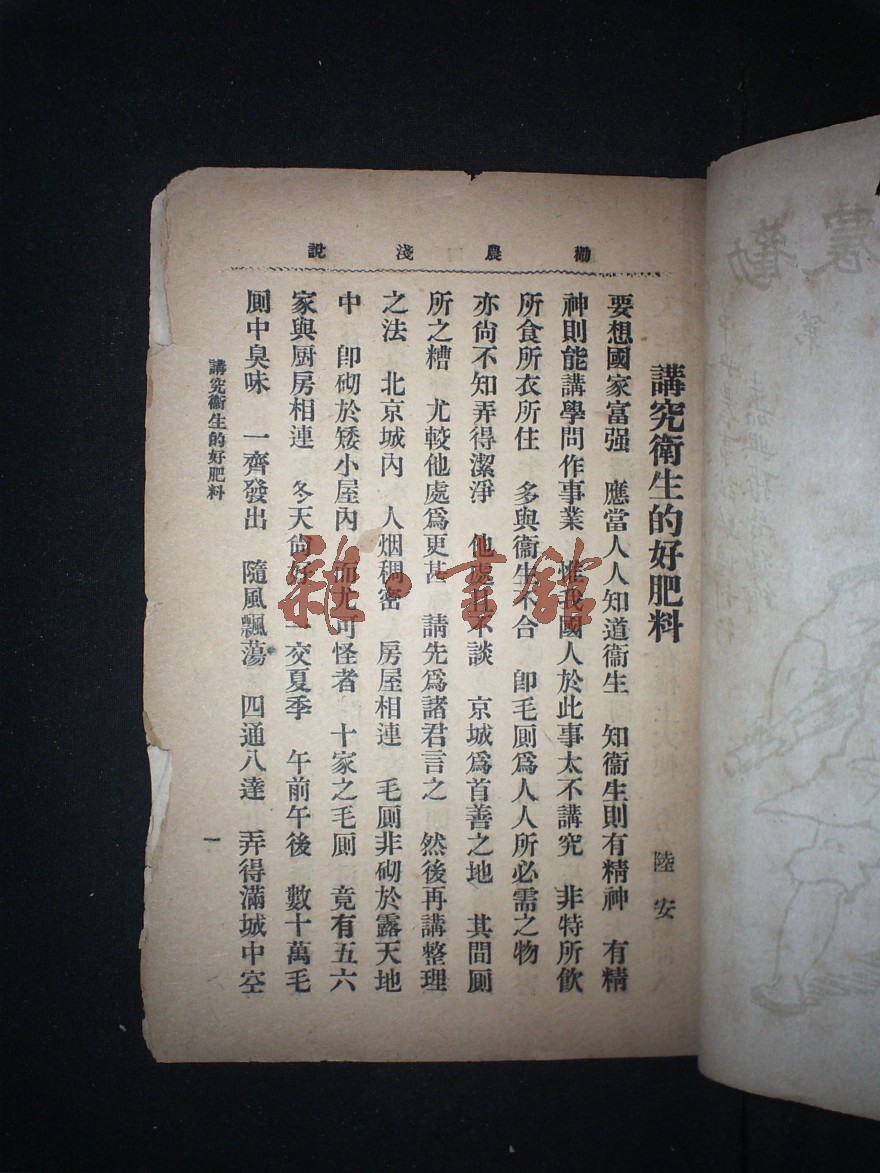 勸農淺說
講究衛生的好肥料
陸安
要想國家富强　應當人人知道衛生　知衛生則有精神　有精
神則能講學問作事業　惟我國人於此事太不講究　非特所飲
所食所衣所住　多與衛生不合　卽毛厠爲人人所必需之物
亦尙不知弄得潔淨　他處且不談　京城爲首善之地　其間厠
所之糟　尤較他處爲更甚　請先爲諸君言之　然後再講整理
之法　北京城內　人烟稠密　房屋相連　毛厠非砌於露天地
中　卽砌於矮小屋內　而尤可怪者　十家之毛厠　竟有五六
家與厨房相連　冬天尙好　一交夏季　午前午後　數十萬毛
厠中臭味　一齊發出　隨風飄蕩　四通八達　弄得滿城中空
講究衛生的好肥料
一
雜·書館
勸農
第